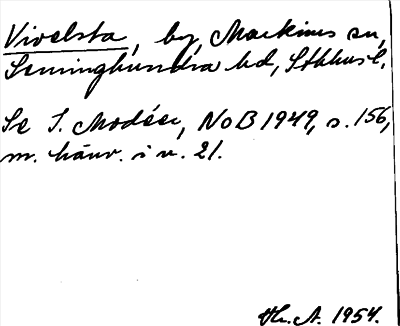 Vivelsta, by, Markims sn,
Seminghundra hd, Sthlms l.
Se I. Modéer, NoB 1949, s. 156,
m. hänv. i n. 21.
Th. A. 1954.